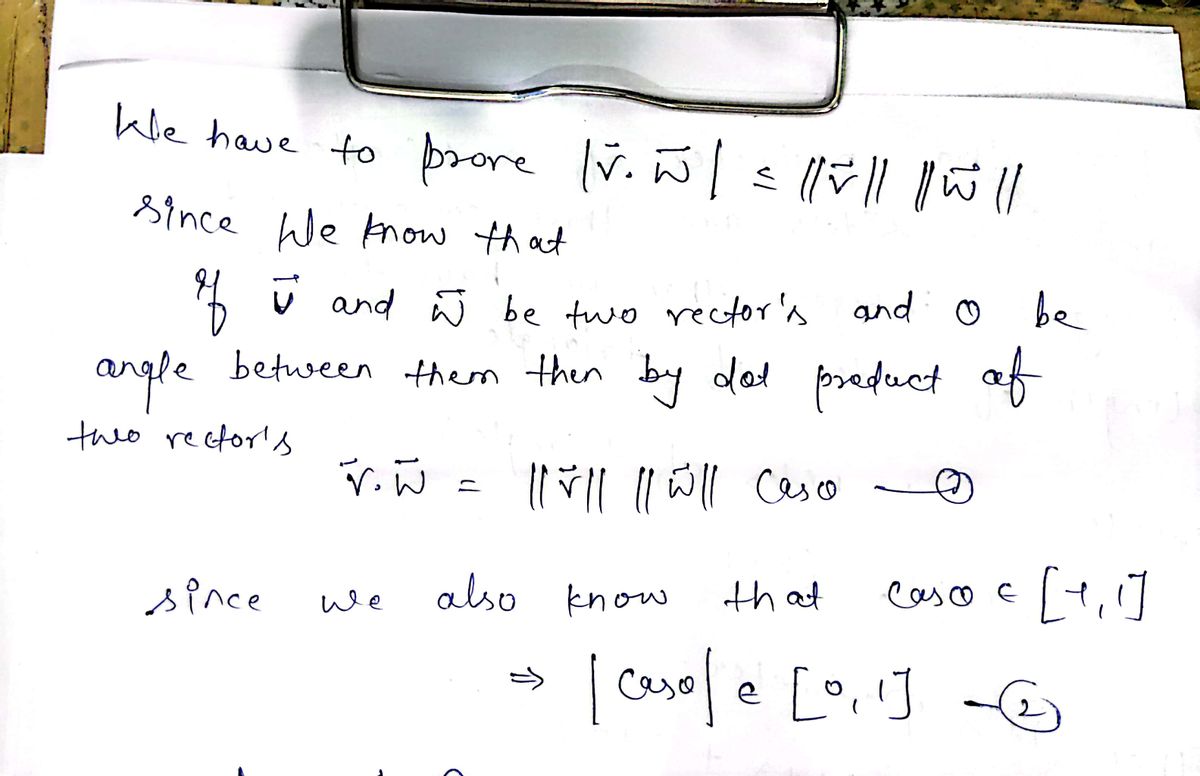 We have to prove |v⃗. w⃗| ≤ ||v⃗|| ||w⃗||
since We know that
If v⃗ and w⃗ be two vector's and θ be
angle between them then by dot product of
two vector's
v⃗. w⃗ = ||v⃗|| ||w⃗|| cosθ —①
since we also know that cosθ ∈ [-1, 1]
⇒ |cosθ| ∈ [0, 1] —②